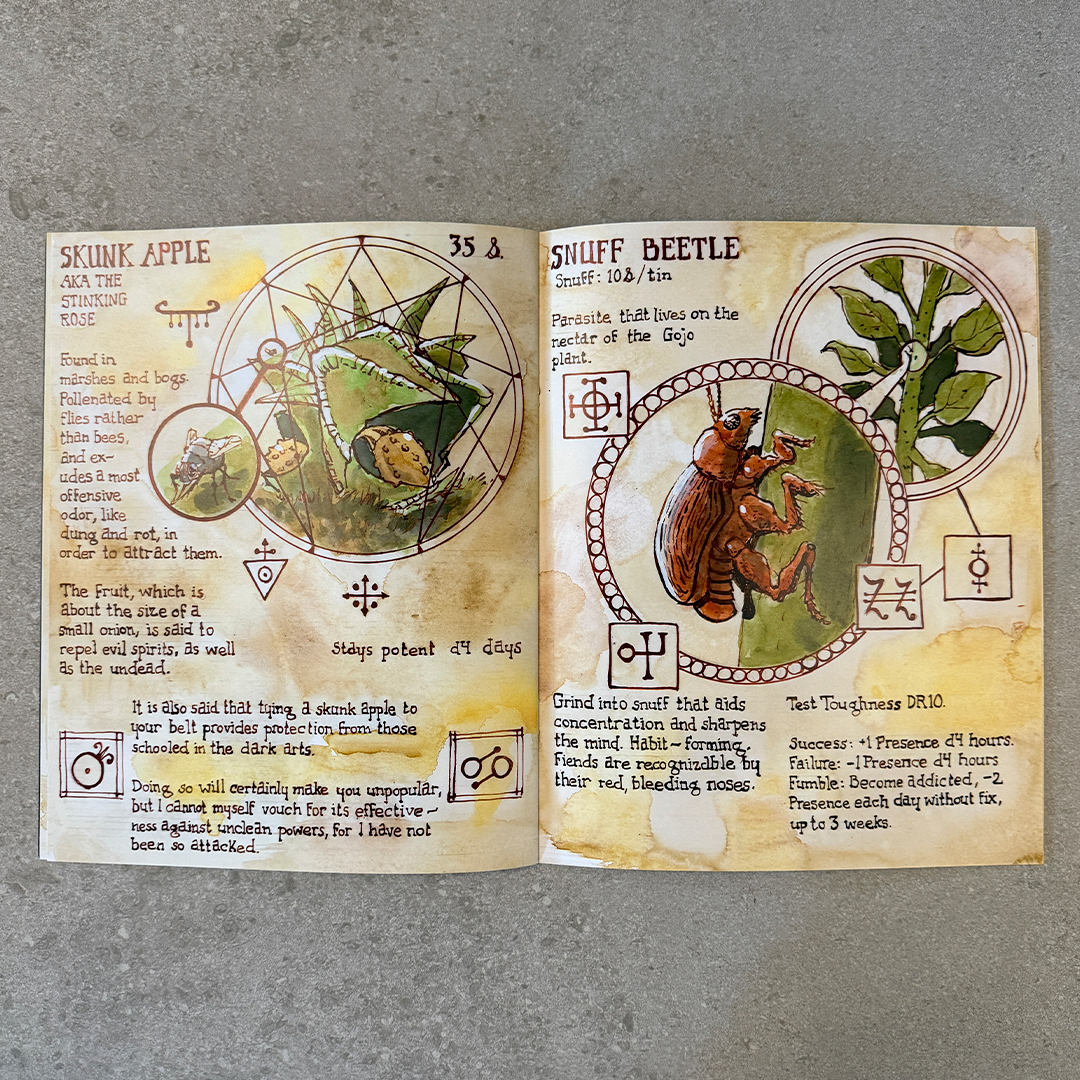 SKUNK APPLE
AKA THE
STINKING
ROSE
35 S.
Found in
marshes and bogs.
Pollenated by
flies rather
than bees,
and ex-
udes a most
offensive
odor, like
dung and rot, in
order to attract them.
The Fruit, which is
about the size of a
small onion, is said to
repel evil spirits, as well
as the undead.
Stays potent d4 days
It is also said that tying a skunk apple to
your belt provides protection from those
schooled in the dark arts.
Doing so will certainly make you unpopular,
but I cannot myself vouch for its effective-
ness against unclean powers, for I have not
been so attacked.
SNUFF BEETLE
Snuff: 10S/tin
Parasite that lives on the
nectar of the Gojo
plant.
Grind into snuff that aids
concentration and sharpens
the mind. Habit-forming.
Fiends are recognizable by
their red, bleeding noses.
Test Toughness DR10.
Success: +1 Presence d4 hours.
Failure: -1 Presence d4 hours
Fumble: Become addicted, -2
Presence each day without fix,
up to 3 weeks.